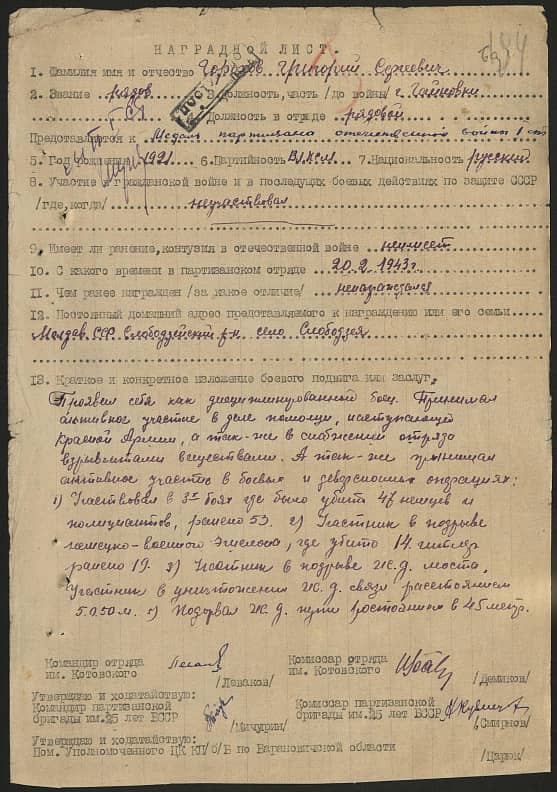 НАГРАДНОЙ ЛИСТ.
1. Фамилия имя и отчество Григорий Сергеевич
2. Звание рядов. 3. Должность, часть /до войны/
Должность в отряде рядовой
Представляется к Медаль партизана отечественной войны I ст
5. Год рождения 1921 6. Партийность ВЛКСМ 7. Национальность русский
8. Участие в гражданской войне и в последующих боевых действиях по защите СССР
/где, когда/ неучаствовал
9. Имеет ли ранение, контузия в отечественной войне неимеет
10. С какого времени в партизанском отряде 20.2.1943г
11. Чем ранее награжден /за какое отличие/ ненаграждался
12. Постоянный домашний адрес представляемого к награждению или его семьи
Молдав. ССР Слободзейский р-н село Слободзея
13. Краткое и конкретное изложение боевого подвига или заслуг:
Проявил себя как дисциплинированный боец. Принимал
активное участие в деле помощи, наступающей
Красной Армии, а так-же в снабжении отряда
взрывчатами веществами. А так-же принимал
активное участие в боевых и диверсионых операциях:
1) Участвовал в 3х боях где было убито 47 немцев и
полицаитов, ранено 53. 2) Участник в подрыве
немецко-военного эшелона, где убито 14 гитлер
ранено 19. 3) Участник в подрыве ж.д. моста,
Участник в уничтожении ж.д. связи расстоянием
5.050м. 5) Подорвал ж.д. пути ростоянием в 45 метр.
Командир отряда
им. Котовского
/Леваков/
Комиссар отряда
им. Котовского
/Демиков/
Утверждаю и ходатайствую:
Командир партизанской
бригады им. 25 лет БССР
/Мичурин/
Комиссар партизанской
бригады им. 25 лет БССР
/Смирнов/
Утверждаю и ходатайствую:
Пом. Уполномоченного ЦК КП/б/Б по Барановичской области
/Царюк/